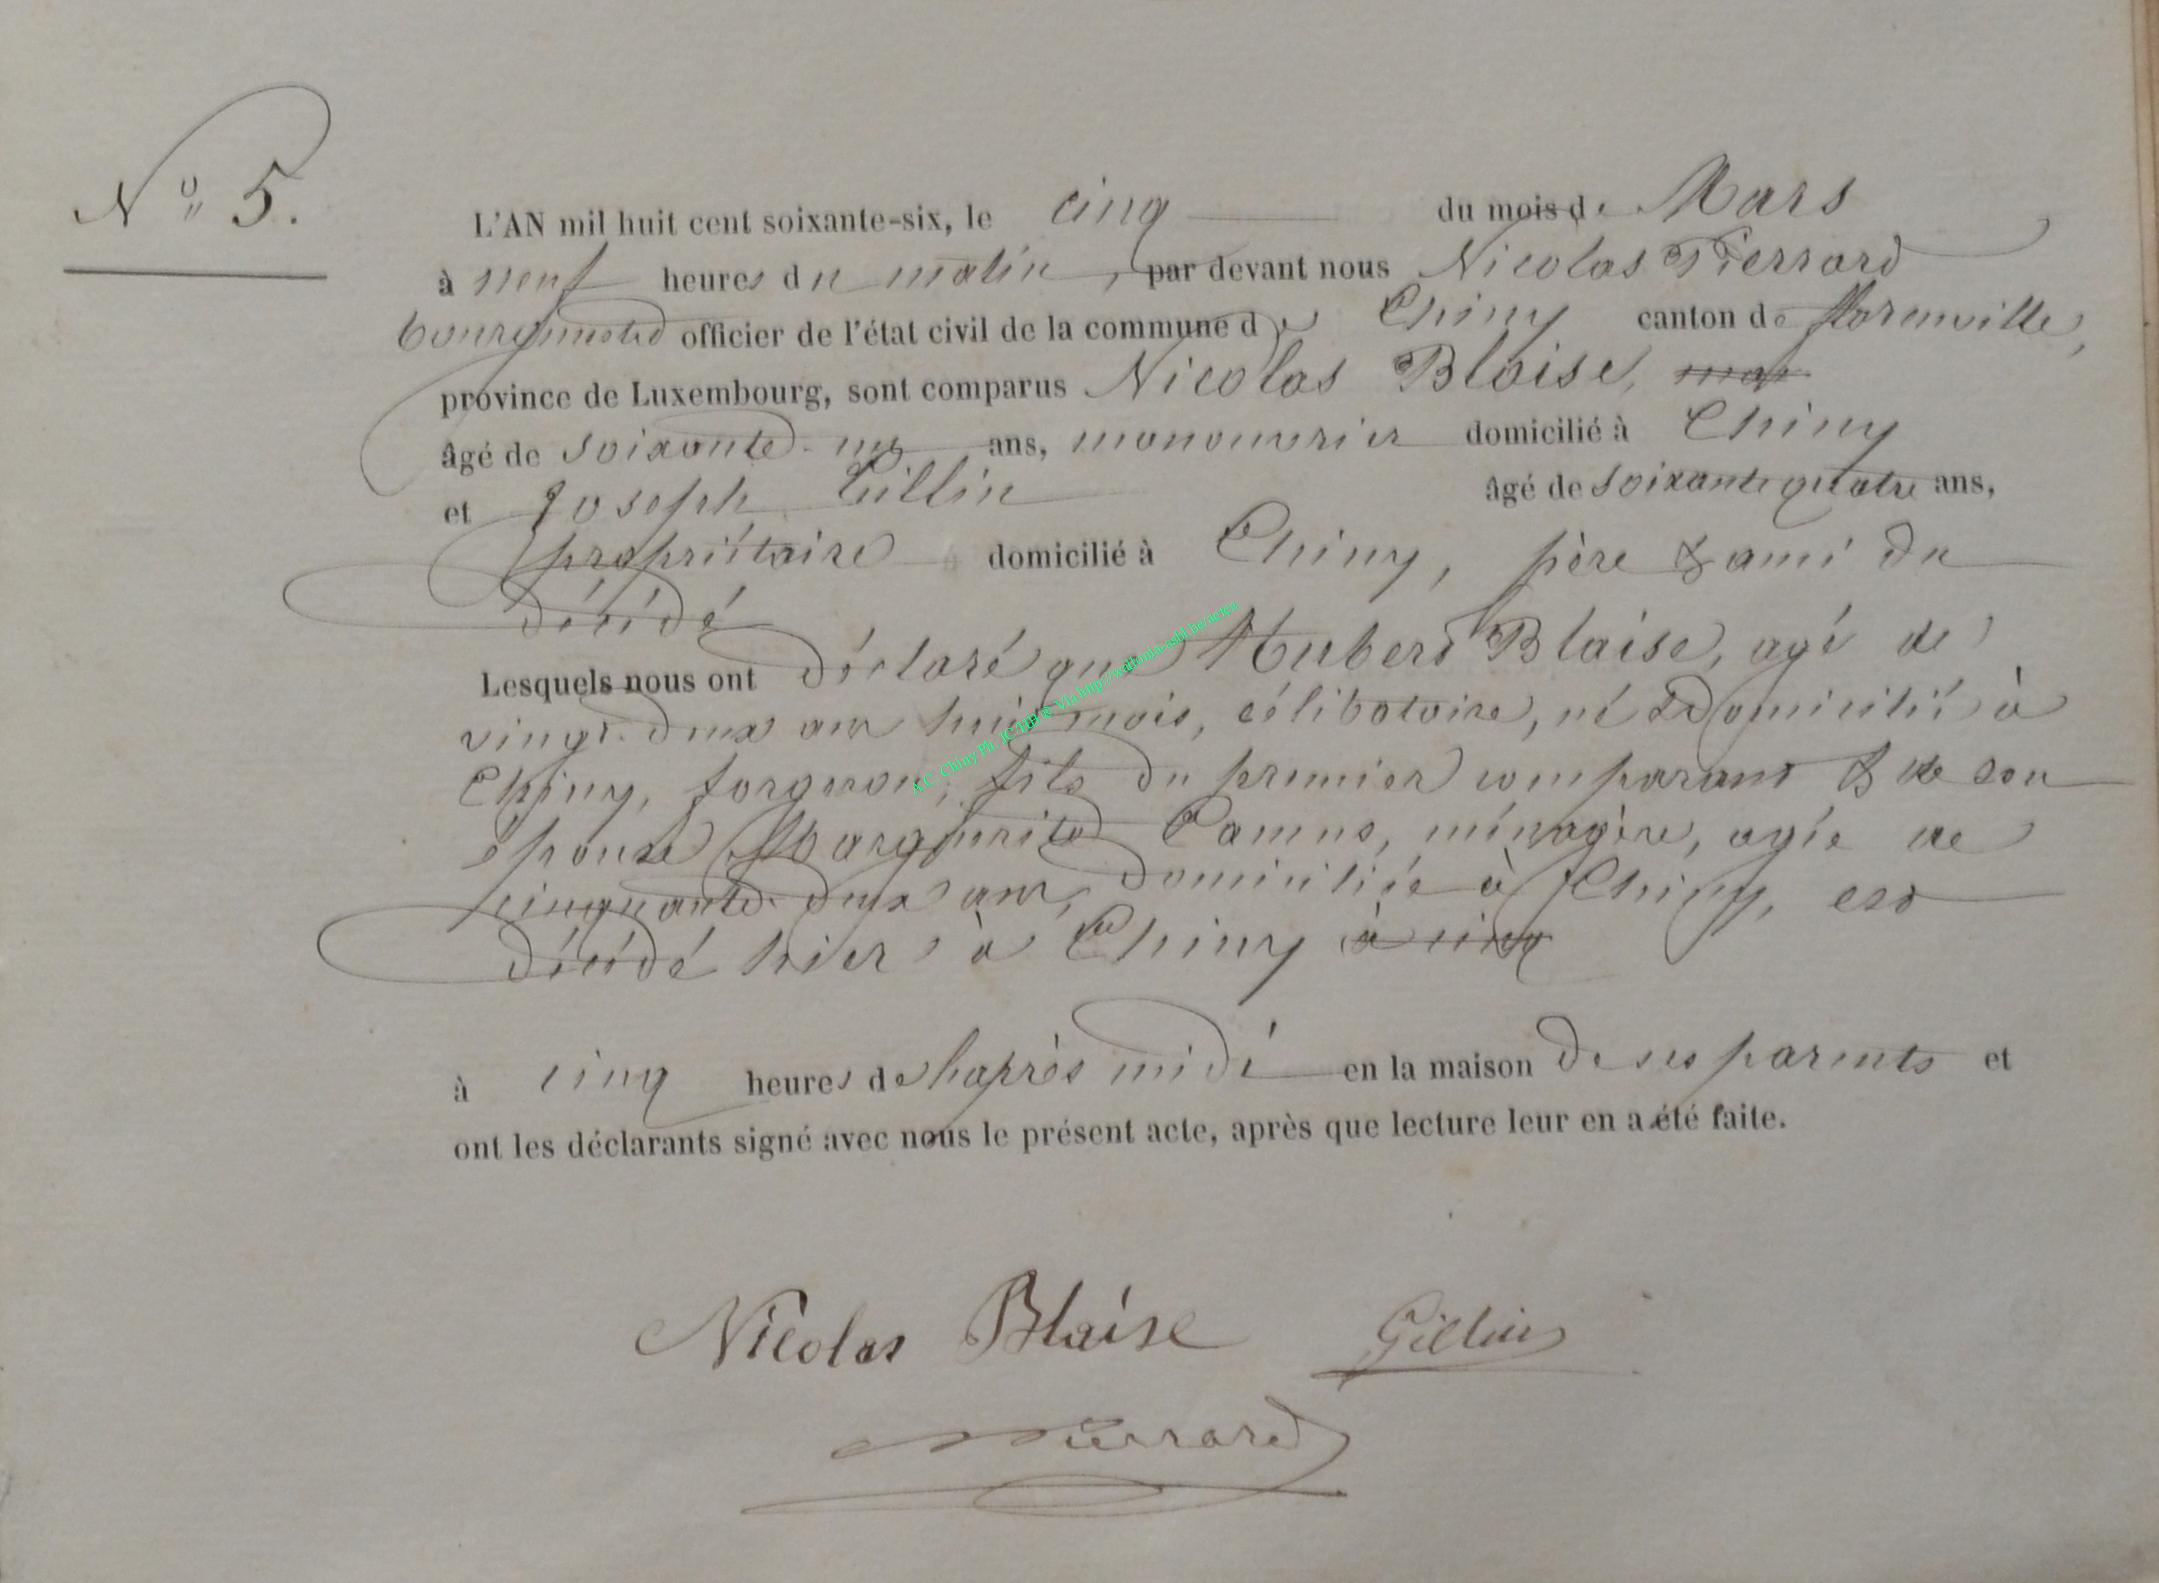 N° 5.
L'AN mil huit cent soixante-six, le cinq du mois de Mars
à neuf heures du matin, par devant nous Nicolas Pierrard
bourgmestre officier de l'état civil de la commune de Chiny canton de Florenville,
province de Luxembourg, sont comparus Nicolas Blaise,
âgé de soixante-un ans, manouvrier domicilié à Chiny
et Joseph Gillin âgé de soixante quatre ans,
propriétaire domicilié à Chiny, père & ami du
décédé
Lesquels nous ont déclaré que Hubert Blaise, agé de
vingt-deux ans huit mois, célibataire, né & domicilié à
Chiny, forgeron, fils du premier comparant & de son
épouse Marguerite Camus, ménagère, agée de
cinquante-deux ans, domiciliée à Chiny, est
décédé hier à Chiny à cinq
à cinq heures de l'après midi en la maison de ses parents et
ont les déclarants signé avec nous le présent acte, après que lecture leur en a été faite.
Nicolas Blaise Gillin
Pierrard
A.C. Chiny Ph. JC TJB & Via http://wallonia-asbl.be/actes